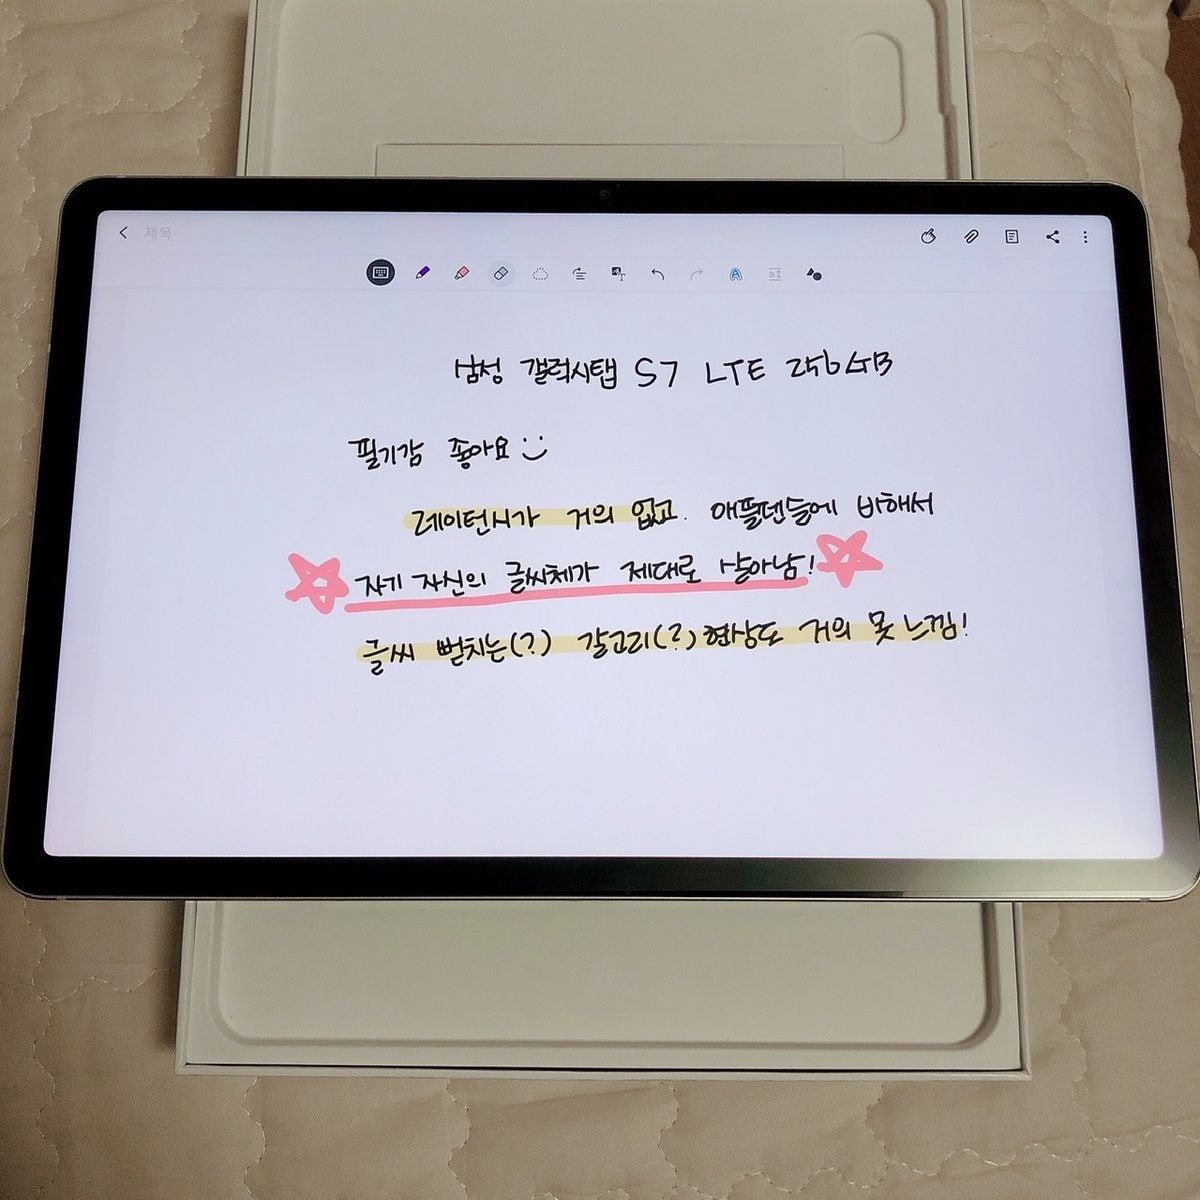 제목
삼성 갤럭시탭 S7 LTE 256GB
필기감 좋아요 :)
레이턴시가 거의 없고. 애플펜슬에 비해서
자기 자신의 글씨체가 제대로 살아남!
글씨 뻗치는(?) 갈고리(?) 현상도 거의 못 느낌!